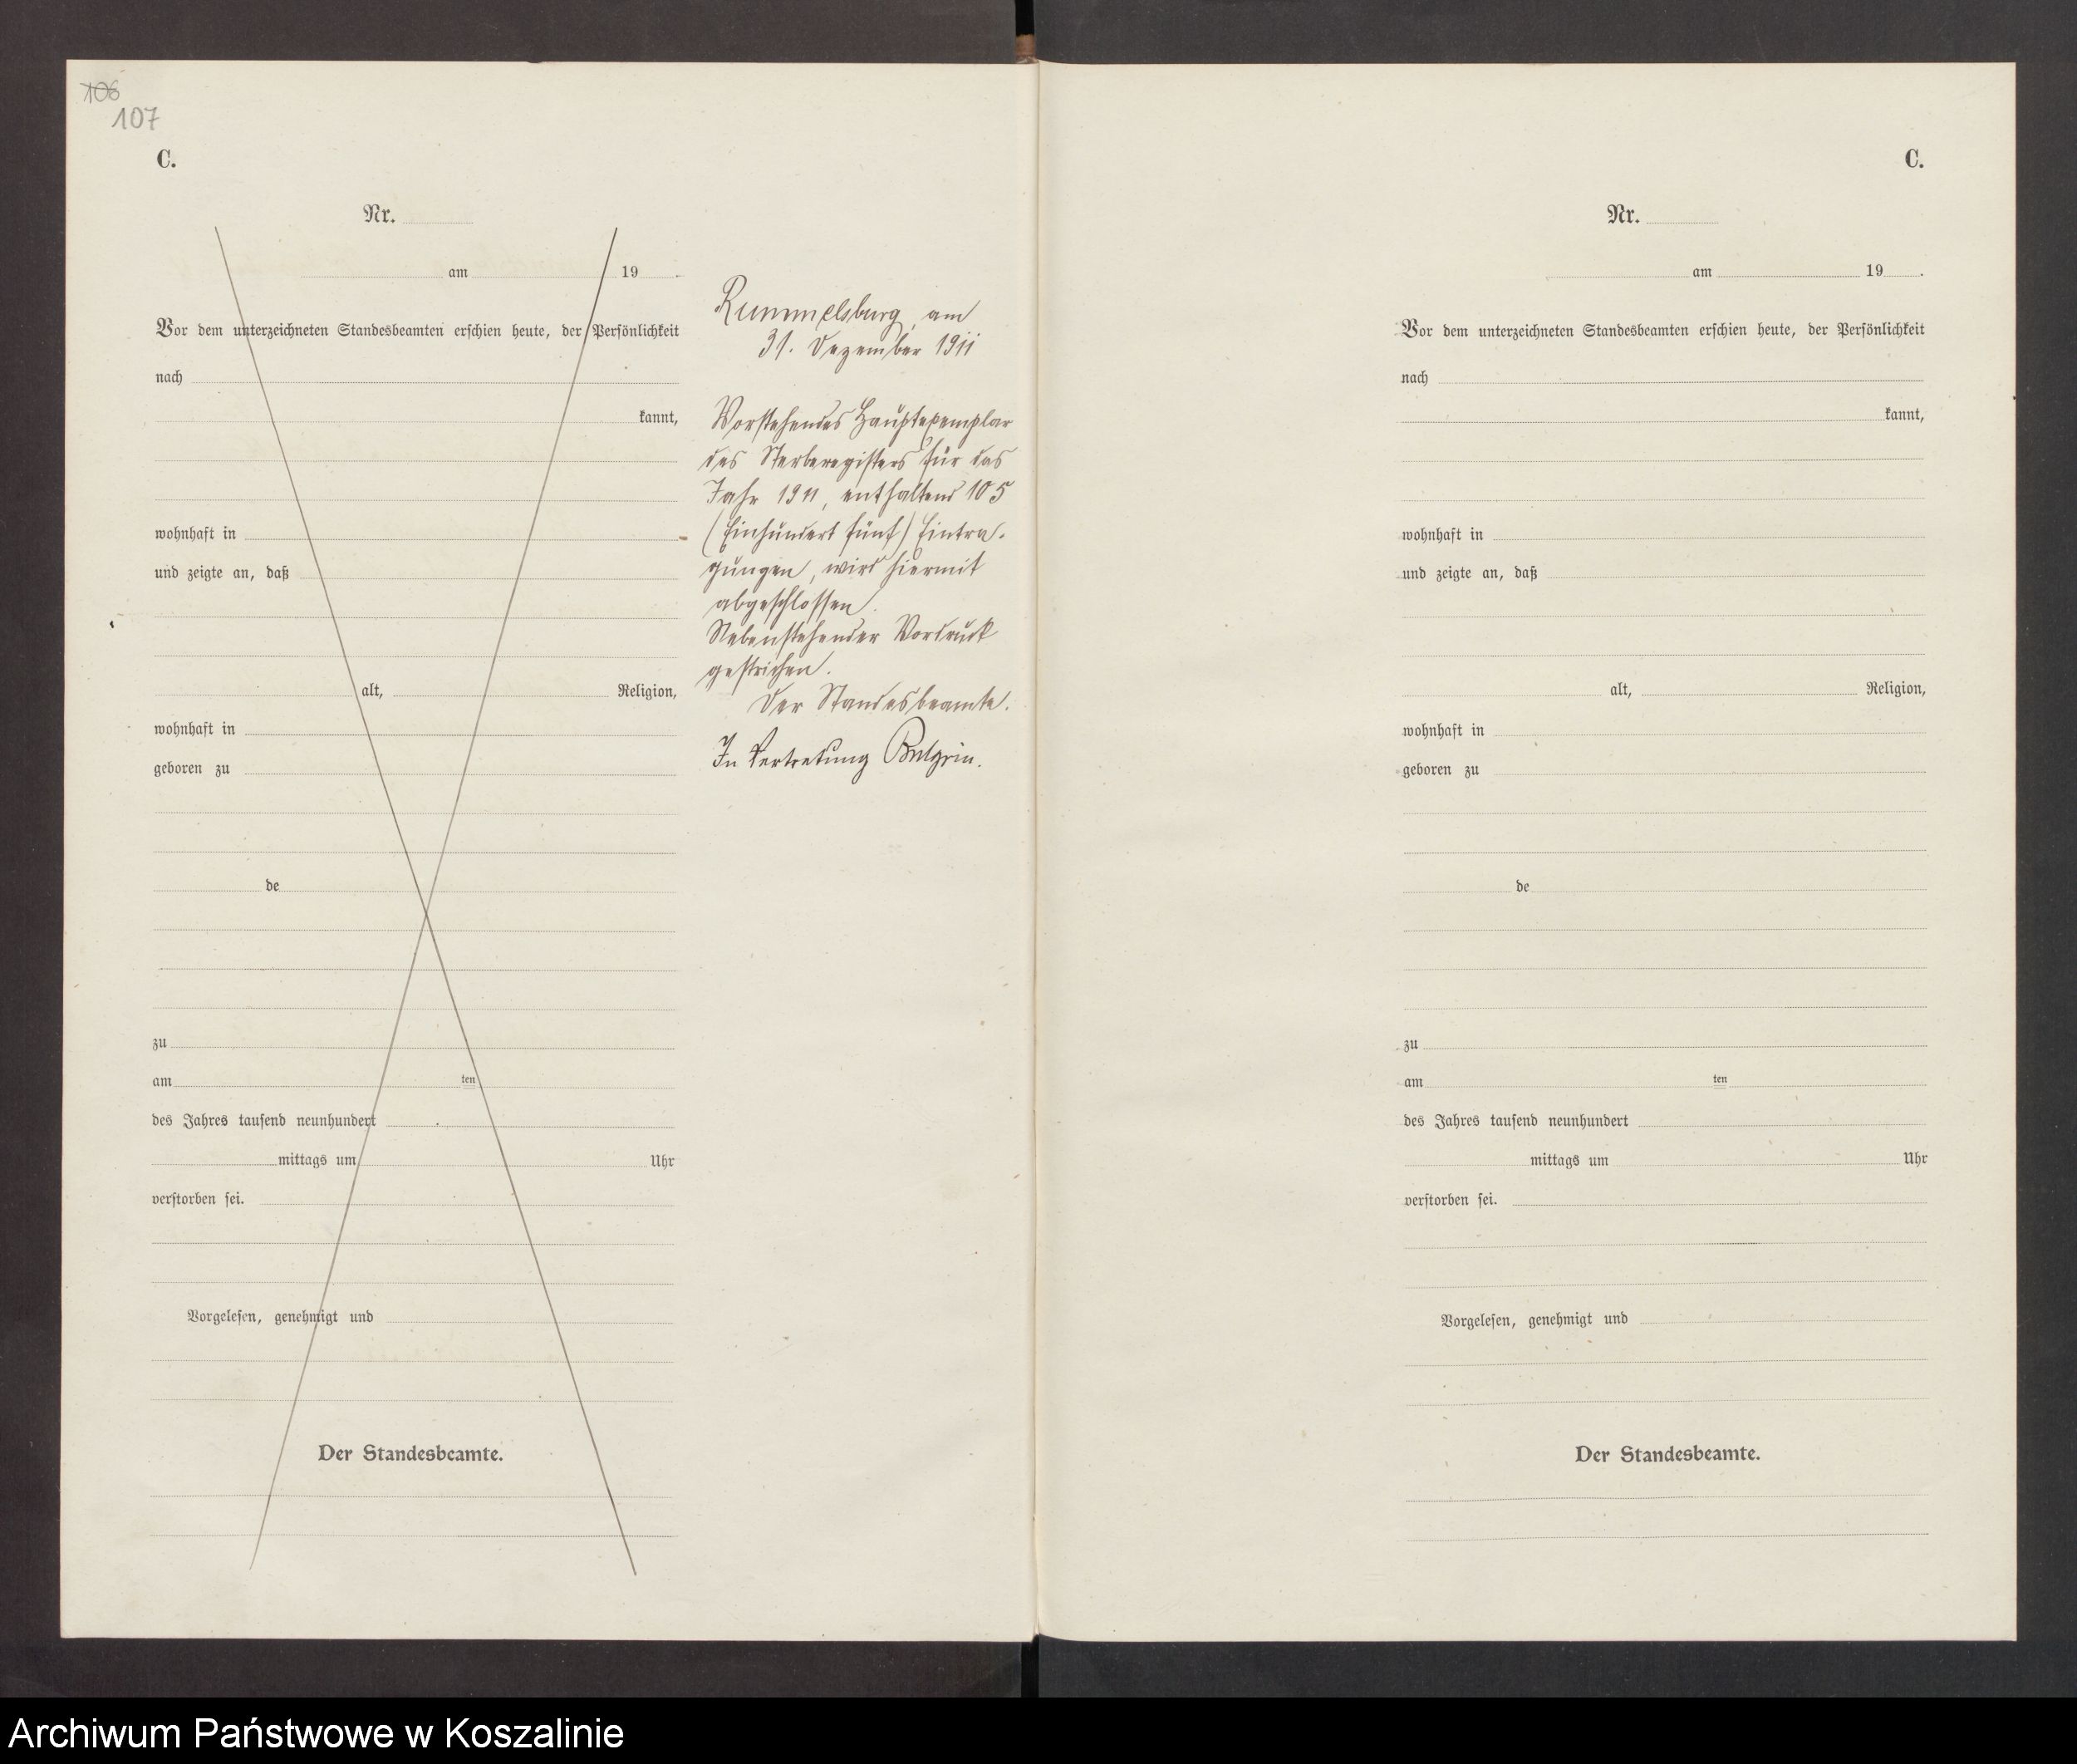 106
107
C.
Nr.
am 19
Vor dem unterzeichneten Standesbeamten erschien heute, der Persönlichkeit
nach
kannt,
wohnhaft in
und zeigte an, daß
alt, Religion,
wohnhaft in
geboren zu
de
zu
am ten
des Jahres tausend neunhundert
mittags um Uhr
verstorben sei.
Vorgelesen, genehmigt und
Der Standesbeamte.
Rummelsburg, am
31. Dezember 1911
Vorstehendes Hauptexemplar
des Sterberegisters für das
Jahr 1911, enthaltend 105
(Einhundert fünf) Eintra-
gungen, wird hiermit
abgeschlossen.
Nebenstehender Vordruck
gestrichen.
Der Standesbeamte.
In Vertretung Bulgrin.
C.
Nr.
am 19 .
Vor dem unterzeichneten Standesbeamten erschien heute, der Persönlichkeit
nach
kannt,
wohnhaft in
und zeigte an, daß
alt, Religion,
wohnhaft in
geboren zu
de
zu
am ten
des Jahres tausend neunhundert
mittags um Uhr
verstorben sei.
Vorgelesen, genehmigt und
Der Standesbeamte.
Archiwum Państwowe w Koszalinie